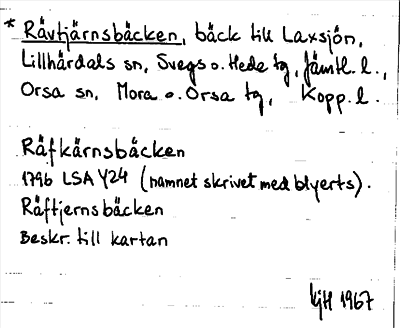 * Rävtjärnsbäcken, bäck till Laxsjön,
Lillhärdals sn, Svegs o. Hede tg, Jämtl. l.,
Orsa sn, Mora o. Orsa tg, Kopp. l.
Räfkärnsbäcken
1796 LSA Y24 (namnet skrivet med blyerts).
Räftjernsbäcken
Beskr. till kartan
KjH 1967